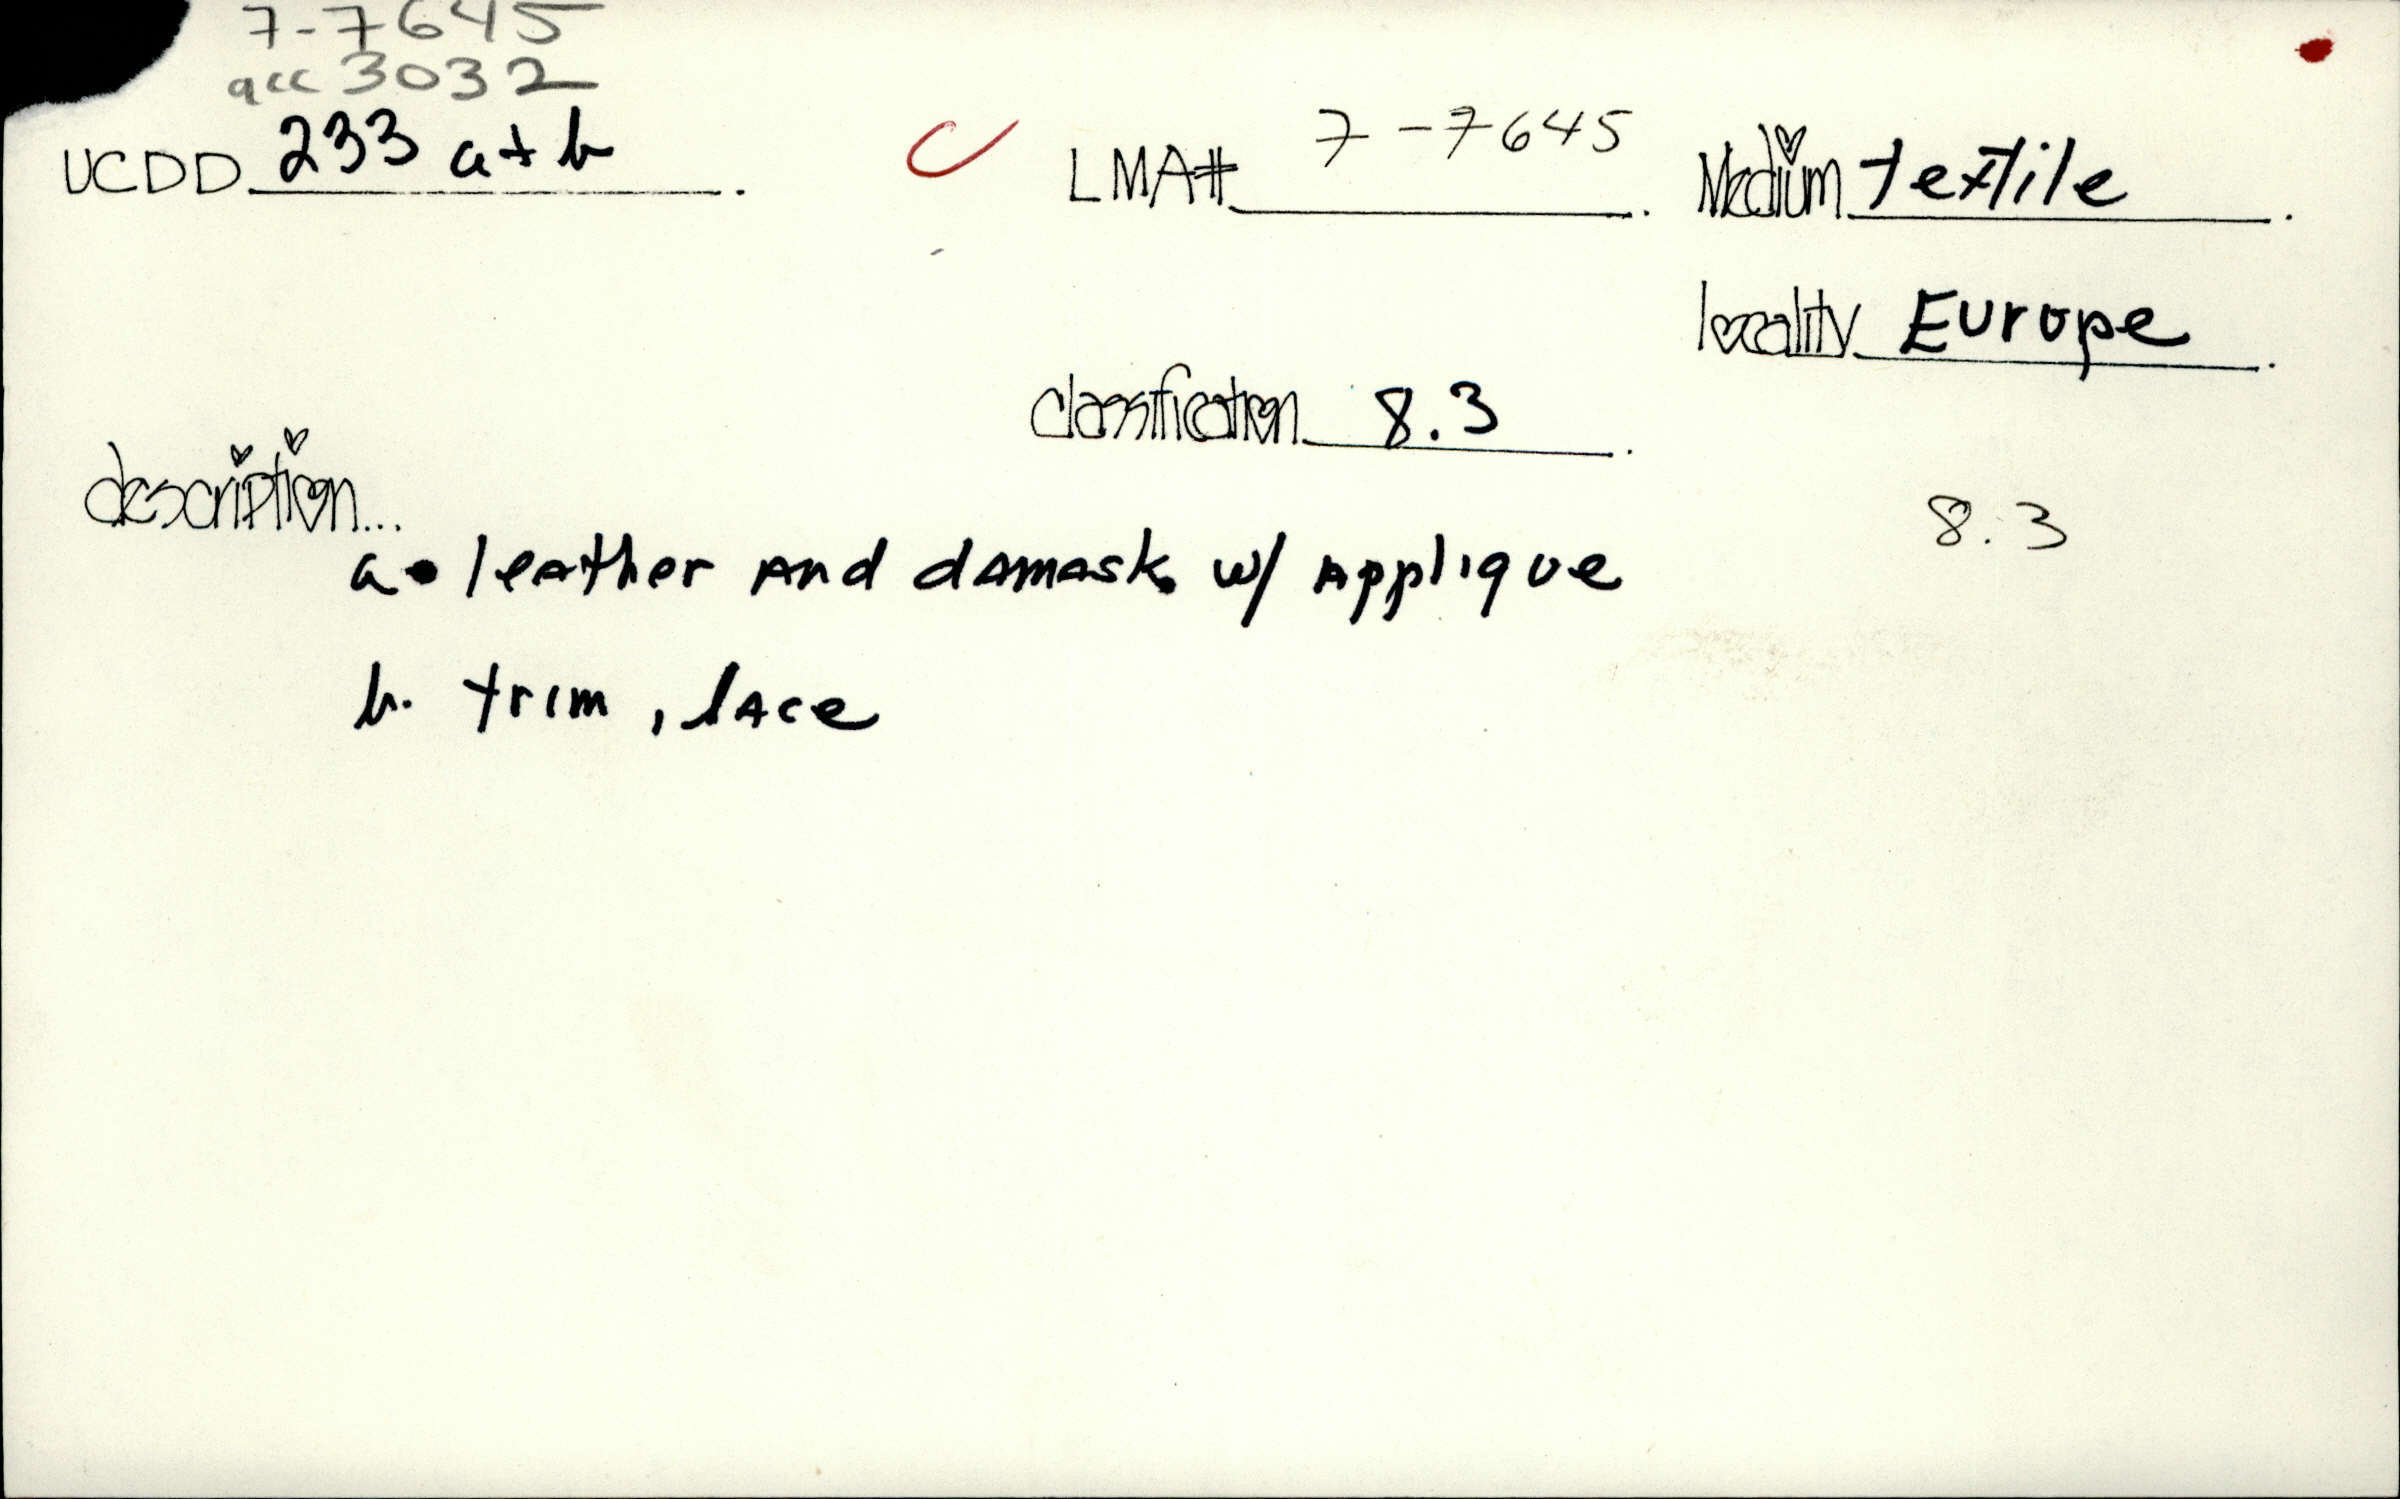 7-7645
acc 3032
UCDD 233 a+b.
LMA# 7-7645. Medium textile.
locality Europe.
classification 8.3.
description...
8.3
a. leather and damask w/ applique
b. trim, lace